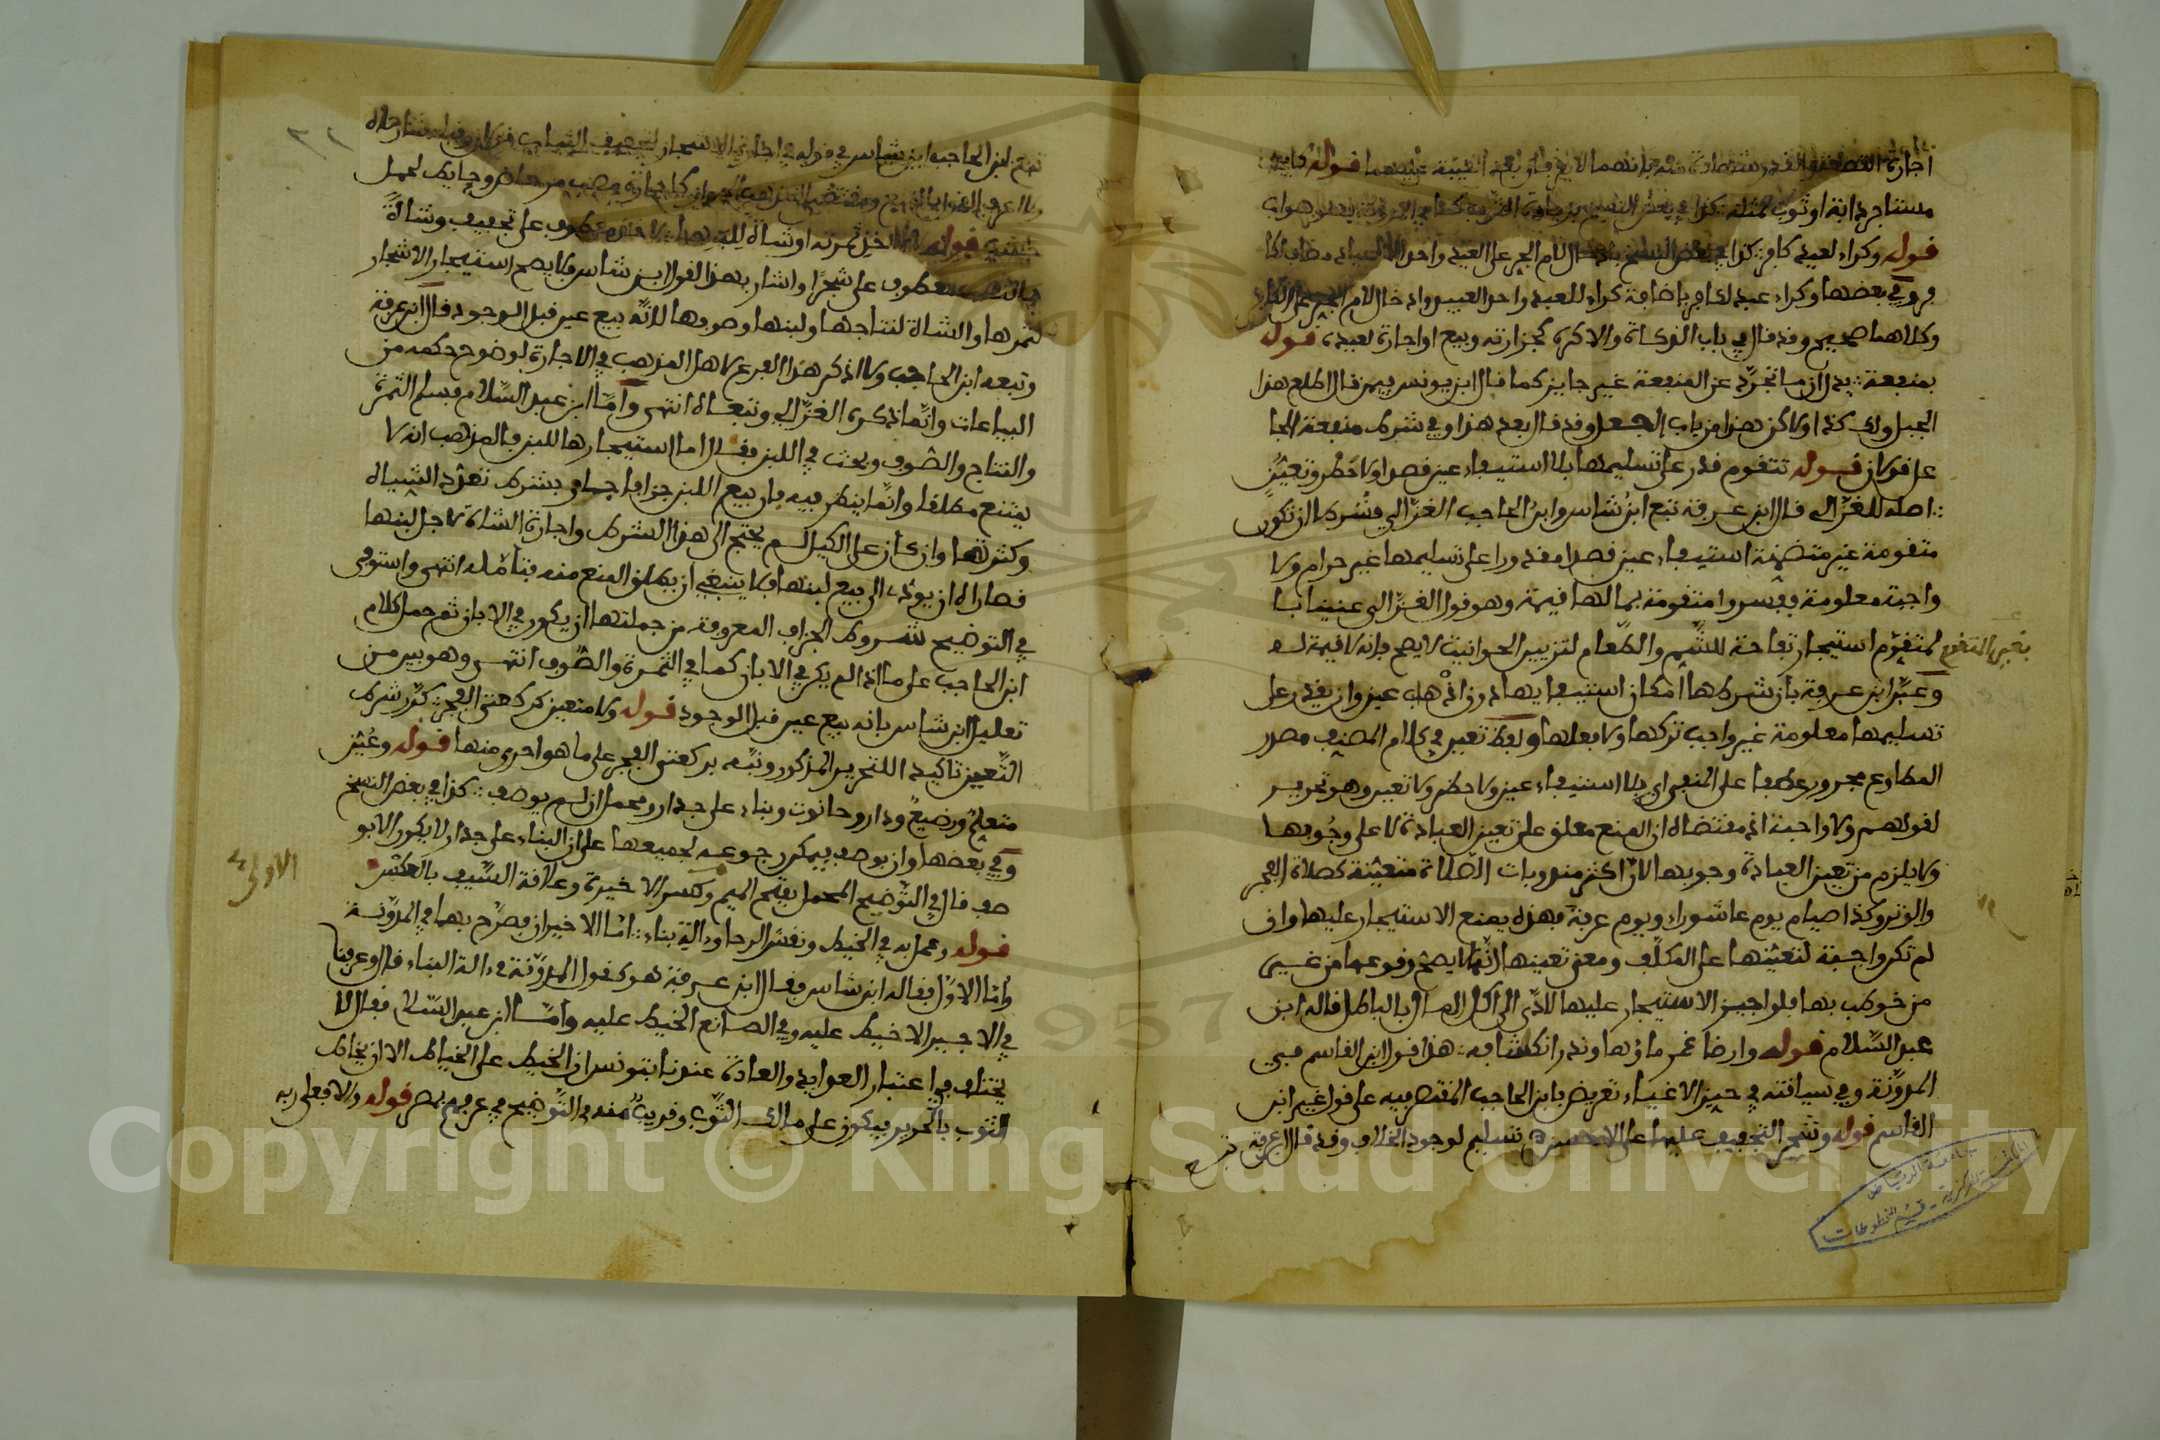 مستاجر دابة او ثوب لمثله
قوله وكراء لعبد كافر
في وفي بعضها وكراء عبد لكافر باضافة كراء للعبد
وكلاهما صحيح وقد قال في باب الزكاة والاكره كجزارته وبيع او اجارة لعبده قوله
بمنفعة يدل ان ما تجرد عن المنفعة غير جايز كما قال ابن يونس فيمن قال اطلع هذا
الجبل ولك كذا ولاكن هذا من باب الجعل وقد قال بعد هذا وفي شرط منفعة الجا
عل قولان قوله تتقوم قدر على تسليمها بلا استيفاء عين قصدا ولا حظر وتعين
اصله للغزالى قال ابن عرفة تبع ابن شاس وابن الحاجب الغزالي فشرطا ان تكون
متقومة غير متضمنة استيفاء عين قصدا مقدورا على تسليمها غير حرام ولا
واجبة معلومة ففسروا متقومة بما لها قيمة وهو قول الغزالى
استيجار تفاحة للشم والطعام لتزيين الحوانيت لا يصح فانه لا قيمة له
وعبر ابن عرفة بان شرطها امكان استيفايها دون اذهاب عين وان يقدر على
تسليمها معلومة غير واجب تركها ولا فعلها ولفظ تعين في كلام المصنف مصدر
المطاوع مجرور عطفا على المنفي اي بلا استيفاء عين ولا حظر ولا تعين وهو تحرير
لقولهم ولا واجبة اذ مقتضاه ان المنع معلق على تعين العبادة لا على وجوبها
ولا يلزم من تعين العبادة وجوبها لان اكثر مندوبات الصلاة متعينة كصلاة الفجر
والوتر وكذا صيام يوم عاشوراء ويوم عرفة فهذه يمنع الاستيجار عليها وان
لم تكن واجبة لتعينها على المكلف ومعنى تعينها انها لا يصح وقوعها من غير
من خوطب بها فلو اجيز الاستيجار عليها لادى الى اكل المال بالباطل قاله ابن
عبد السلام قوله وارضا غمر ماؤها وندر انكشافه هذا قول ابن القاسم في
المدونة وفي سياقته في حيز الاغياء تعريض بابن الحاجب المقتصر فيه على قول غير ابن
القاسم قوله وشجر التجفيف عليها على الاحسن تسليم لوجود الخلاف وقد قال ابن عرفة تبع
تبع ابن الحاجب ابن شاس في قوله في اجازة الاستيجار لتجفيف الثياب
قوله لا لاخذ ثمرته او شاة للبنها
معطوف على شجرا واشار بهذا لقول ابن شاس ولا يصح استيجار الاشجار
لثمرها والشاة لنتاجها ولبنها وصوفها لانه بيع عين قبل الوجود قال ابن عرفة
وتبعه ابن الحاجب ولا اذكر هذا الفرع لاهل المذهب في الاجارة لوضوح حكمه من
البياعات وانما ذكره الغزالي وتبعاه انتهى واما ابن عبد السلام فسلم الثمرة
والنتاج والصوف وبحث في اللبن فقال اما استيجارها للبن فالمذهب انه لا
يمتنع مطلقا وانما ينظر فيه فان بيع اللبن جزافا جاز بشرط تعدد الشياه
وكثرتها وان كان على الكيل لم يحتج الى هذا الشرط واجارة الشاة لاجل لبنها
قصاراه ان يؤدى الى بيع لبنها فلا ينبغي ان يطلق المنع منه فتامله انتهى واستوفى
في التوضيح شروط الجزاف المعروفة من جملتها ان يكون في الابان ثم حمل كلام
ابن الحاجب على ما اذا لم يكن في الابان كما في الثمرة والصوف انتهى وهو بين من
تعليل ابن شاس بانه بيع عين قبل الوجود قوله ولا متعين كركعتي الفجر كرر شرط
التعيين تاكيدا للتحرير المذكور ونبه بركعتي الفجر على ما هو احرى منها قوله وعين
متعلم ورضيع ودار وحانوت وبناء على جدار ومحمل ان لم يوصف كذا في بعض النسخ
وفي بعضها وان يوصف فيمكن رجوعه لجميعها على ان البناء على جدار لا يكون الا بو
صف قال في التوضيح المحمل بفتح الميم وكسر الاخيرة وعلاقة السيف بالعكس
قوله وعمل به في الخيط ونقش الرحا وءالة بناء اما الاخيران فصرح بهما في المدونة
واما الاول فقاله ابن شاس فقال ابن عرفة هو كقول المدونة في ءالة البناء قال وعرفنا
في الاجير لا خيط عليه وفي الصانع الخيط عليه واما ابن عبد السلام فقال لا
يختلف في اعتبار العوايد والعادة عندنا بتونس ان الخيط على الخياط الا ان يخاط
الثوب بالحرير فيكون على مالك الثوب وقريب منه في التوضيح في عرفهم بمصر قوله والا فعلى ربه
الاولى
Copyright © King Saud University
1957